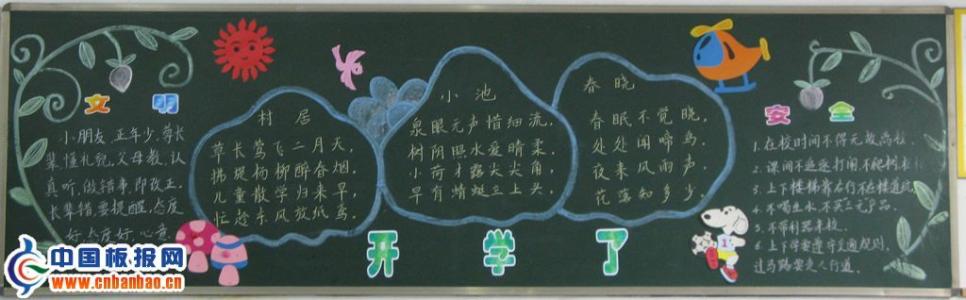 文 明
小朋友,正年少,尊长
辈,懂礼貌,父母教,认
真听,做错事,即改正,
长辈错,要提醒,态度
好,态度好,心意
村 居
草 长 莺 飞 二 月 天,
拂 堤 杨 柳 醉 春 烟。
儿 童 散 学 归 来 早,
忙 趁 东 风 放 纸 鸢。
小 池
泉 眼 无 声 惜 细 流,
树 阴 照 水 爱 晴 柔。
小 荷 才 露 尖 尖 角,
早 有 蜻 蜓 立 上 头。
春 晓
春 眠 不 觉 晓,
处 处 闻 啼 鸟。
夜 来 风 雨 声,
花 落 知 多 少。
安 全
1.在校时间不得无故离校。
2.课间不追逐打闹,不爬树
3.上下楼梯靠右行,不在楼道
4.不喝生水,不买三无产品。
5.不带利器来校。
6.上下学要遵守交通规则,
过马路要走人行道。
开 学 了
中国板报网
www.cnbanbao.cn